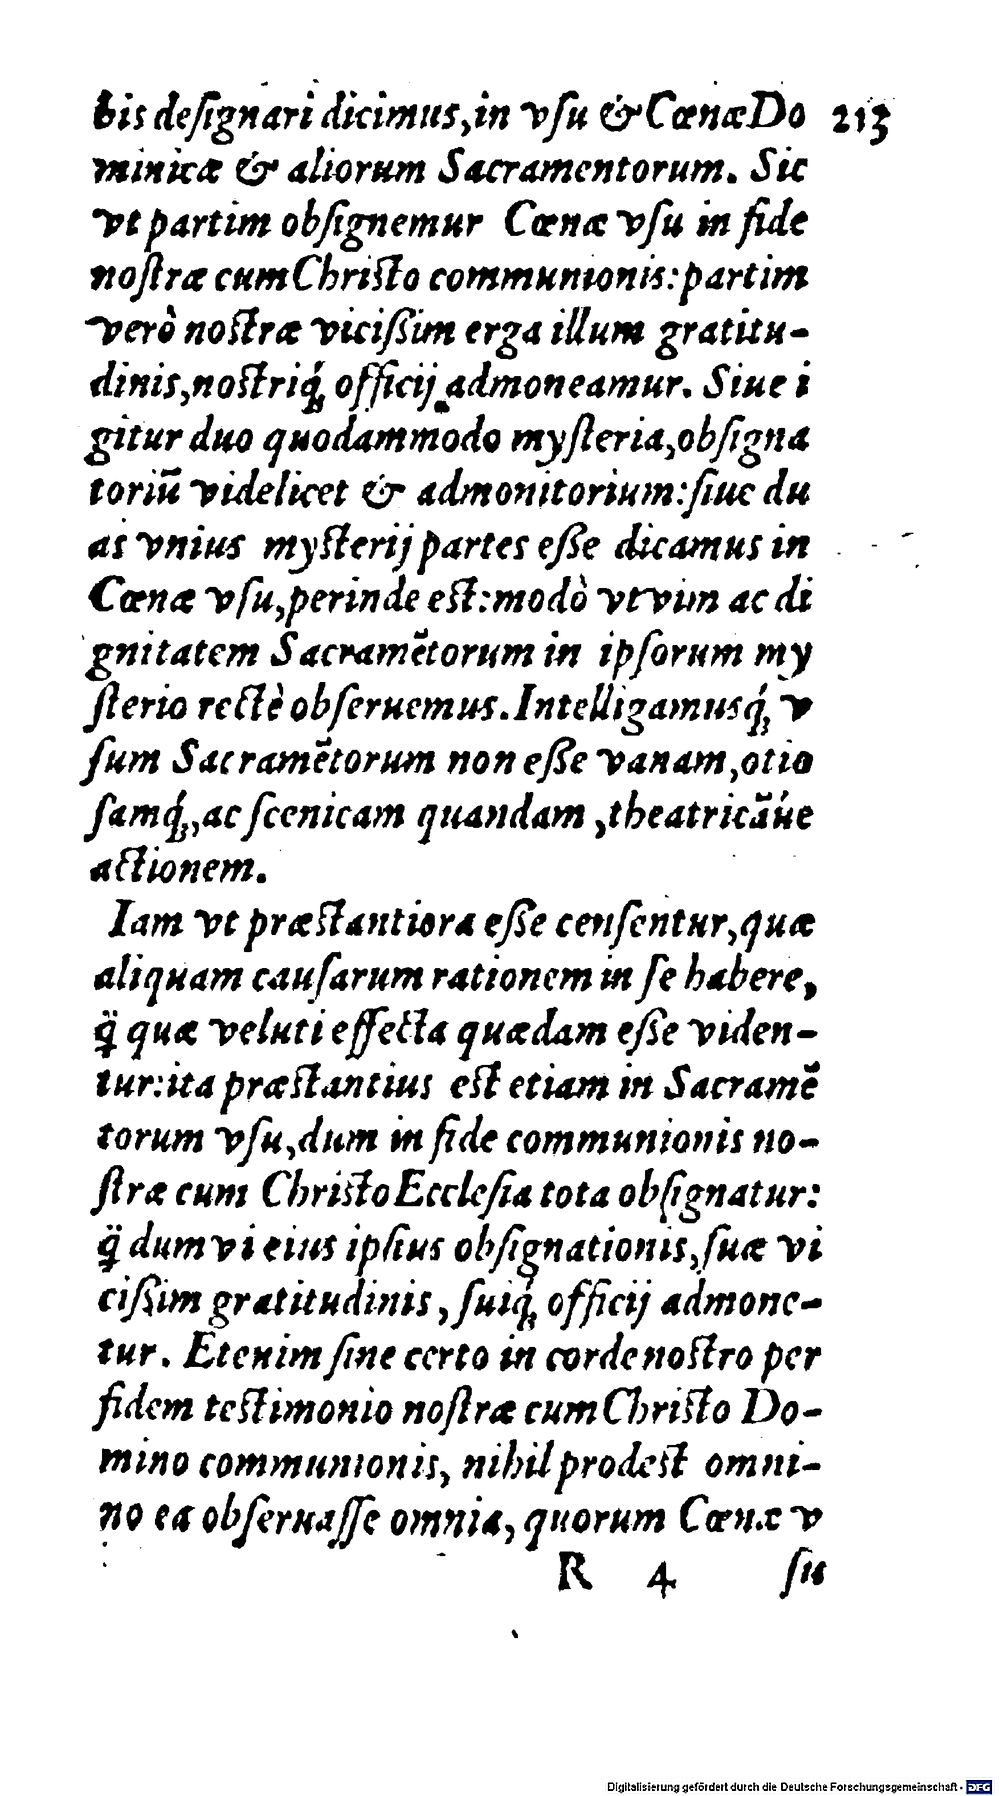 bis deſignari dicimus, in vſu & Cœnæ Do 213
minicæ & aliorum Sacramentorum. Sic
vt partim obſignemur Cœnæ vſu in fide
noſtræ cum Chriſto communionis: partim
verò noſtræ viciſſim erga illum gratitu-
dinis, noſtriq́; officij admoneamur. Siue i
gitur duo quodammodo myſteria, obſigna
toriū videlicet & admonitorium: ſiue du
as vnius myſterij partes eſſe dicamus in
Cœnæ vſu, perinde eſt: modò vt vim ac di
gnitatem Sacramētorum in ipſorum my
ſterio rectè obſeruemus. Intelligamusq́; v
ſum Sacramētorum non eſſe vanam, otio
ſamq́;, ac ſcenicam quandam, theatricāúe
actionem.
Iam vt præſtantiora eſſe cenſentur, quæ
aliquam cauſarum rationem in ſe habere,
q̈̃ quæ veluti effecta quædam eſſe viden-
tur: ita præſtantius eſt etiam in Sacramē
torum vſu, dum in fide communionis no-
ſtræ cum Chriſto Eccleſia tota obſignatur:
q̈̃ dum vi eius ipſius obſignationis, ſuæ vi
ciſſim gratitudinis, ſuiq́; officij admone-
tur. Etenim ſine certo in corde noſtro per
fidem teſtimonio noſtræ cum Chriſto Do-
mino communionis, nihil prodeſt omni-
no ea obſeruaſſe omnia, quorum Cœnæ v
R 4 ſu
Digitalisierung gefördert durch die Deutsche Forschungsgemeinschaft - DFG